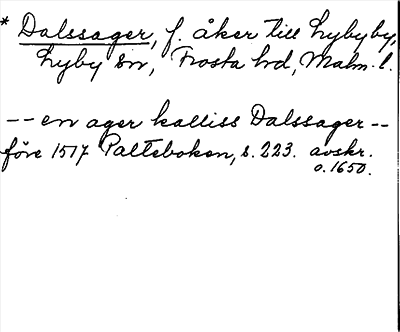 * Dalssager, f. åker till Lyby by,
Lyby sn, Frosta hd, Malm. l.
-- en ager kalliss Dalssager --
före 1517 Palteboken, s. 223. avskr.
o. 1650.